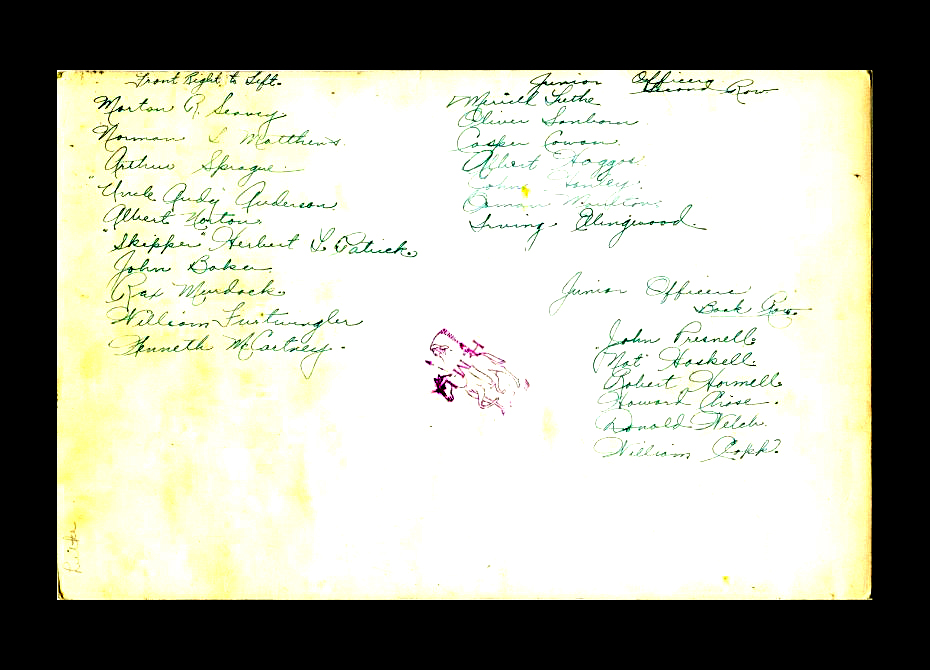 Front Right to Left.
Morton R. Seavey
Norman L Matthews.
Arthur Sprague
"Uncle Andy" Anderson
Albert Norton
"Skipper" Herbert L Patrick
John Baker
Rax Murdock
William Furtwangler
Kenneth McCartney.
Junior Officers
Second Row
Merrill Luthe
Oliver Sanborn
Casper Cowan.
Albert Haggas.
John
Moulton.
Irving Elingwood
Junior Officers
Back Row.
John Presnell
"Nat" Haskell
Robert Hormell
Howard
Donald Welch.
William Copp.